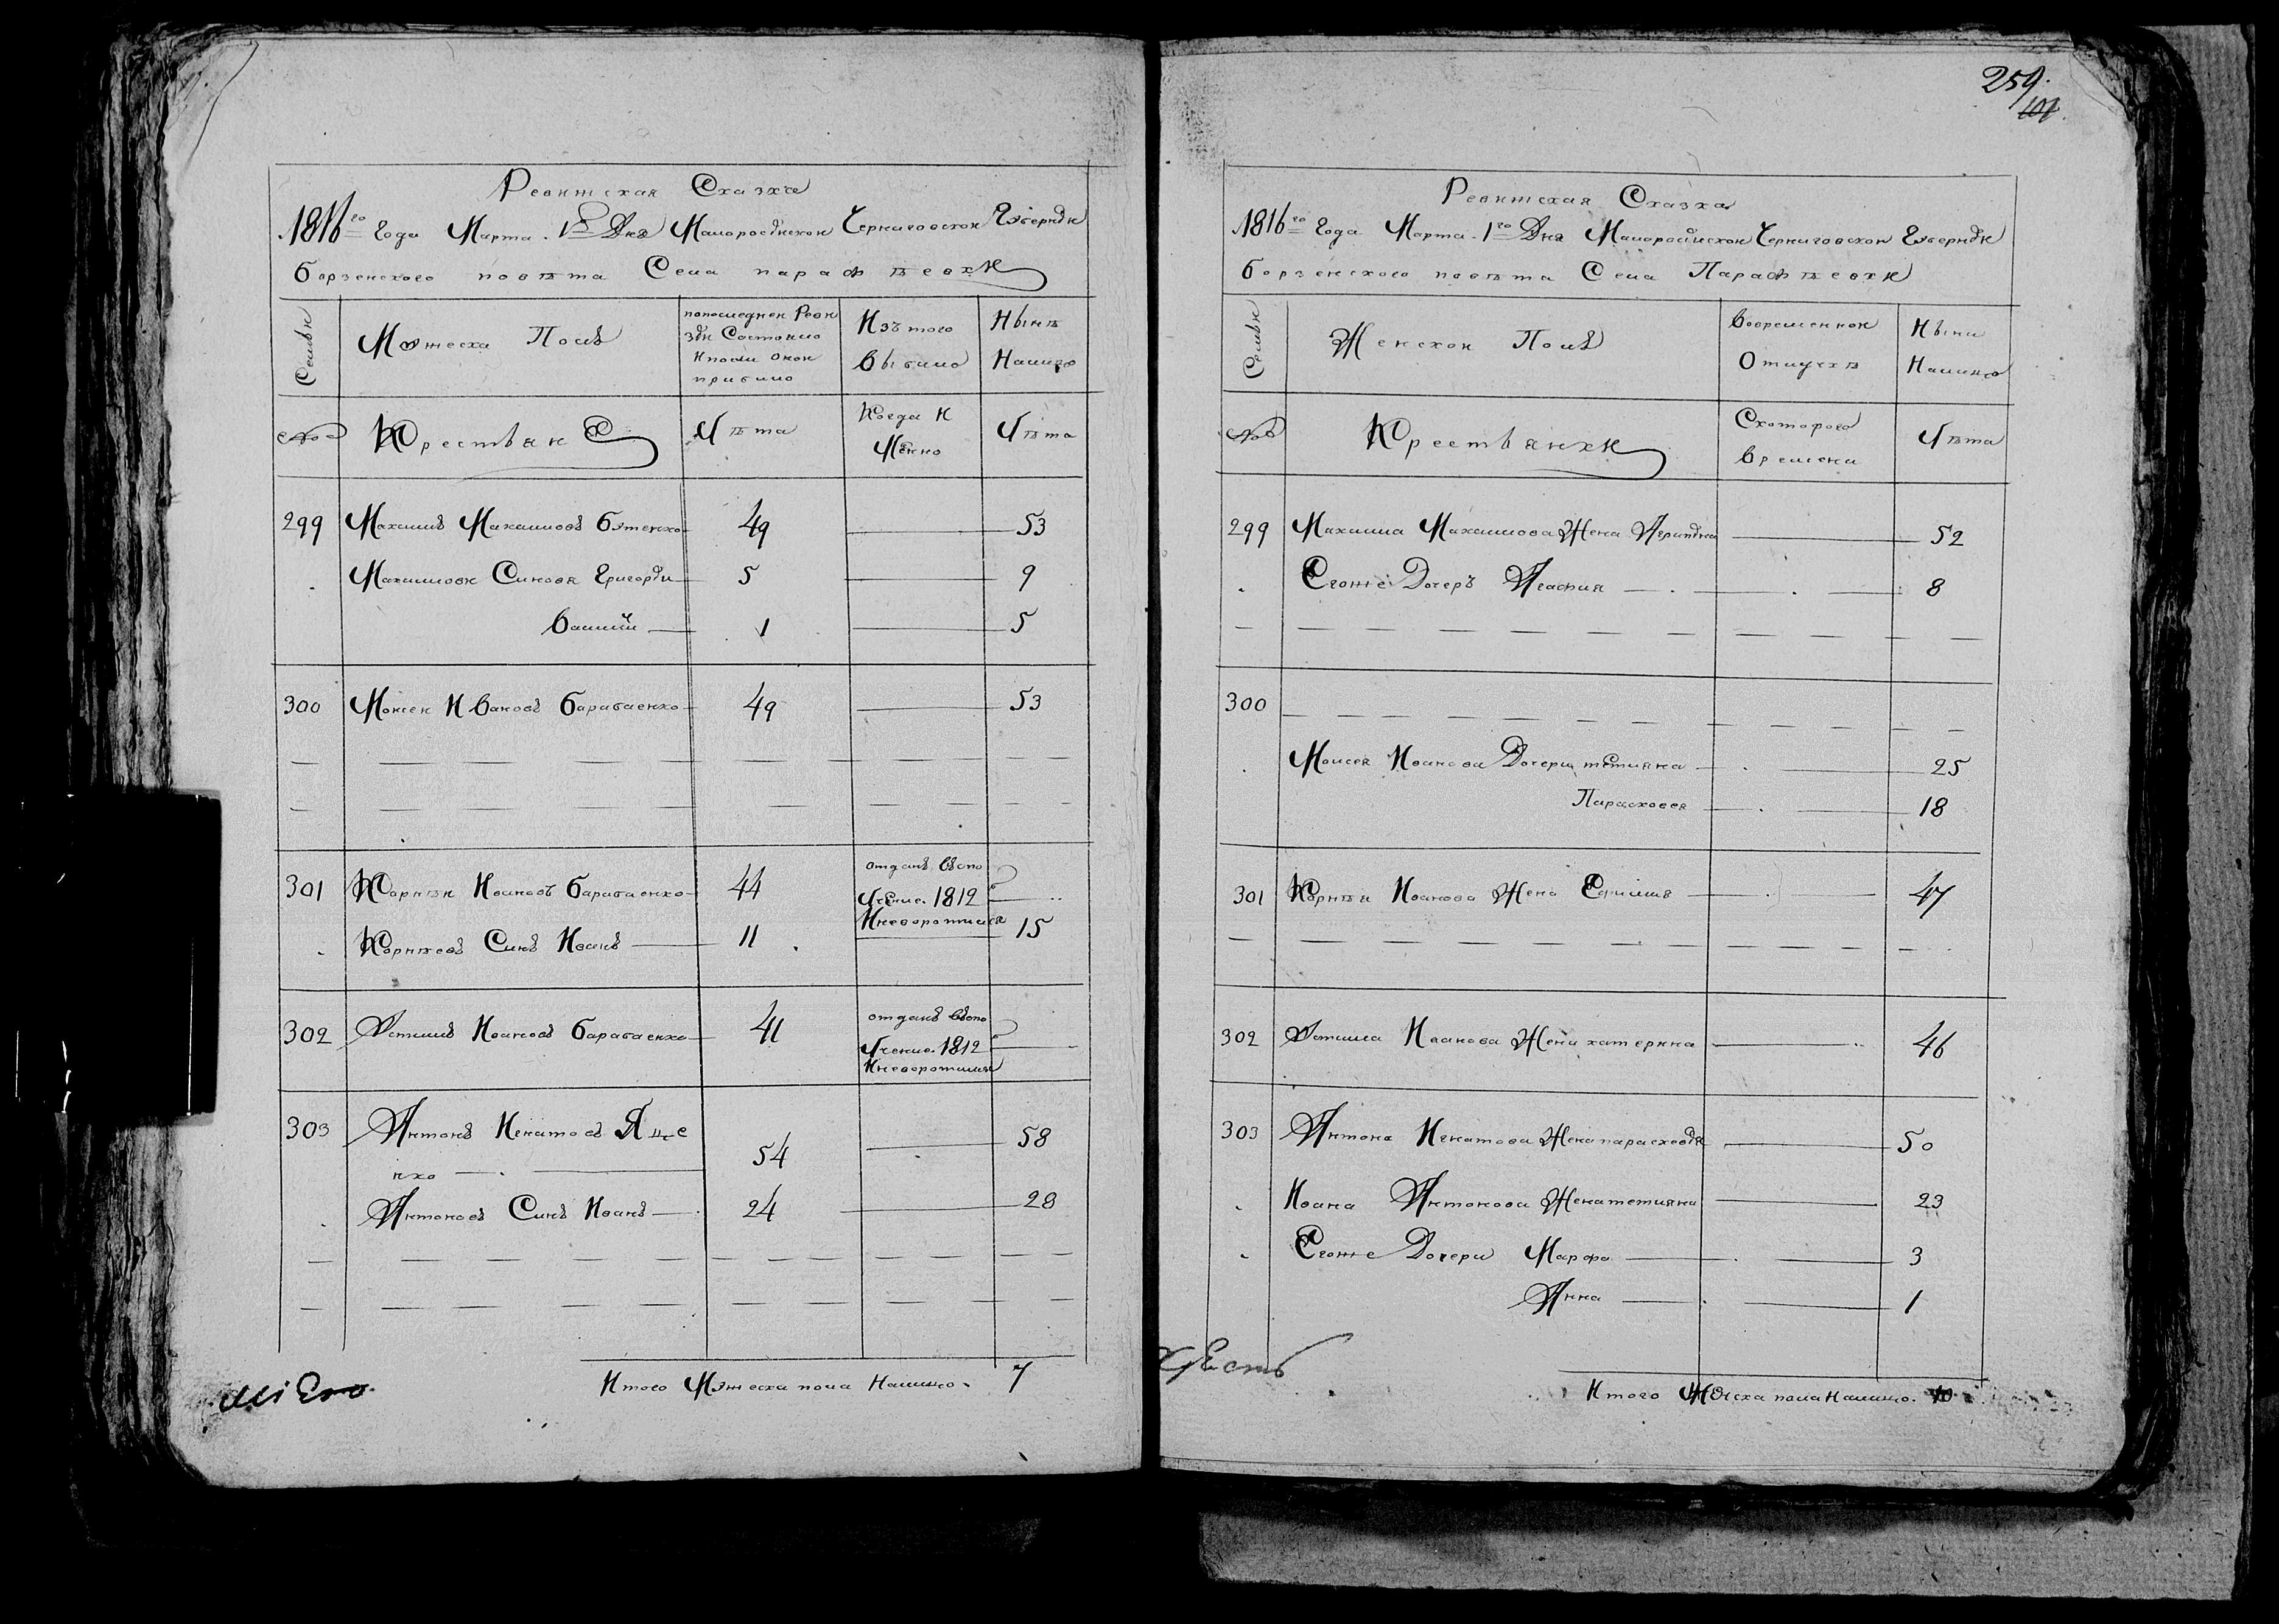 Ревитская Сказка
1816го Года Марта 1го Дня Малоросійской Черниговской Губерніи
борзенского повѣта Села парафѣевки
Семьи
Мужеска Полъ
попоследней Реви
зіи Состояло
Ипосли оной
прибило
Изъ того
выбило
Нынѣ
Налицо
№
Крестьяне
Лѣта
Когда и
Менно
Лѣта
299 Максимъ Максимовъ Бутенко 49 53
Максимови Синовя Григорій 5 9
василій 1 5
300 Мойсей Ивановъ барабаенко 49 53
301 Корнѣй Ивановъ барабаенко 44 отданъ въопо
лчение 1812го
Иневоротился
Корнѣевъ Синъ Иванъ 11 15
302 Устимъ Ивановъ барабаенко 41 отданъ въопо
лчение 1812го
Иневоротился
303 Антонъ Игнатовъ Яще
нко 54 58
Антоновъ Синъ Иванъ 24 28
Итого Мужеска пола Налицо 7
259
101
Ревитская Сказка
1816го Года Марта 1го Дня Малоросійской Черниговской Губерніи
борзенского повѣта Села Парафѣевки
Семьи
Женской Полъ
вовременной
Отлучкѣ
Ныни
Налицо
№
Крестьянки
Скоторого
времени
Лѣта
299 Максима Максимова Жена 52
Егоже Дочеръ Агафия 8
300
Моисея Иванова Дочери тетияна 25
Парасковея 18
301 Корнѣя Иванова Жена Ефимия 47
302 Устима Иванова Жена катерина 46
303 Антона Игнатова Жена парасковія 50
Ивана Антонова Жена тетияна 23
Егоже Дочери Марфа 3
Анна 1
Итого Женска пола Налицо 10